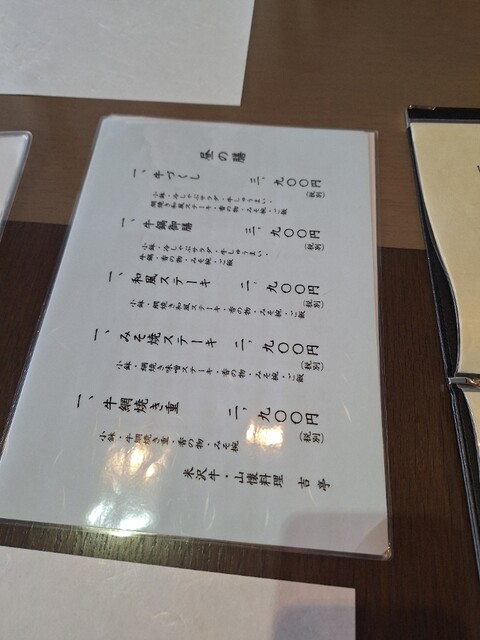 昼の膳
一、牛づくし 三、九〇〇円
(税別)
小鉢・冷しゃぶサラダ・牛しゅうまい・
網焼き和風ステーキ・香の物・みそ椀・ご飯
一、牛鍋御膳 三、九〇〇円
(税別)
小鉢・冷しゃぶサラダ・牛しゅうまい・
牛鍋・香の物・みそ椀・ご飯
一、和風ステーキ 二、九〇〇円
(税別)
小鉢・網焼き和風ステーキ・香の物・みそ椀・ご飯
一、みそ焼ステーキ 二、九〇〇円
(税別)
小鉢・網焼き味噌ステーキ・香の物・みそ椀・ご飯
一、牛網焼き重 二、九〇〇円
(税別)
小鉢・牛網焼き重・香の物・みそ椀
米沢牛・山懐料理 吉亭